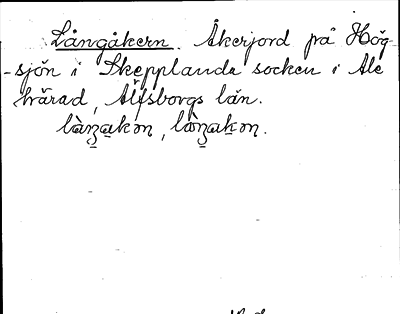 Långåkern. Åkerjord på Hög-
-sjön i Skepplanda socken i Ale
härad, Älfsborgs län.